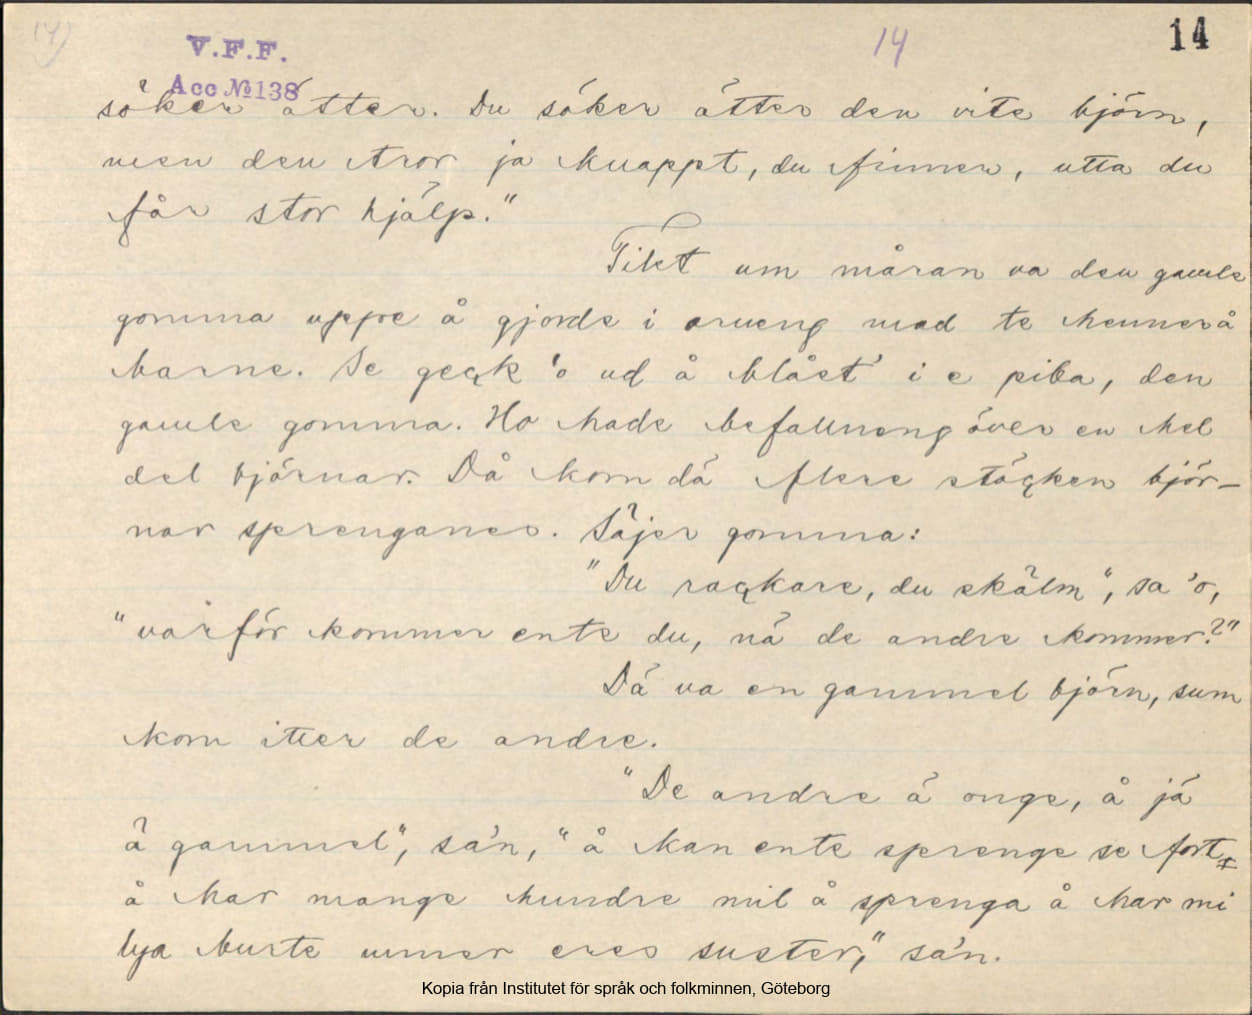 14)
V.F.F.
14
14
Acc № 138
söker ätter. Du söker ätter den vite björn,
men den tror ja knappt, du finner, utta du
får stor hjälp."
Tilt um måran va den gamle
gomma uppe å gjorde i orneng mad te henner å
barne. Se geck 'o ud å blåst' i e piba, den
gamle gomma. Ho hade befallneng över en hel
del björnar. Då kom dä flere stäcken björ-
nar sprenganes. Säjer gomma:
"Du rackare, du skälm", sa 'o,
"varför kommer ente du, nä de andre kommer?"
Dä va en gammel björn, sum
kom itter de andre.
"De andre ä onge, å jä
ä gammel", sa'n, "å kan ente sprenge se fort,
å har mange hundre mil å sprenga å har mi
lya burte unner eres suster," sa'n.
Kopia från Institutet för språk och folkminnen, Göteborg